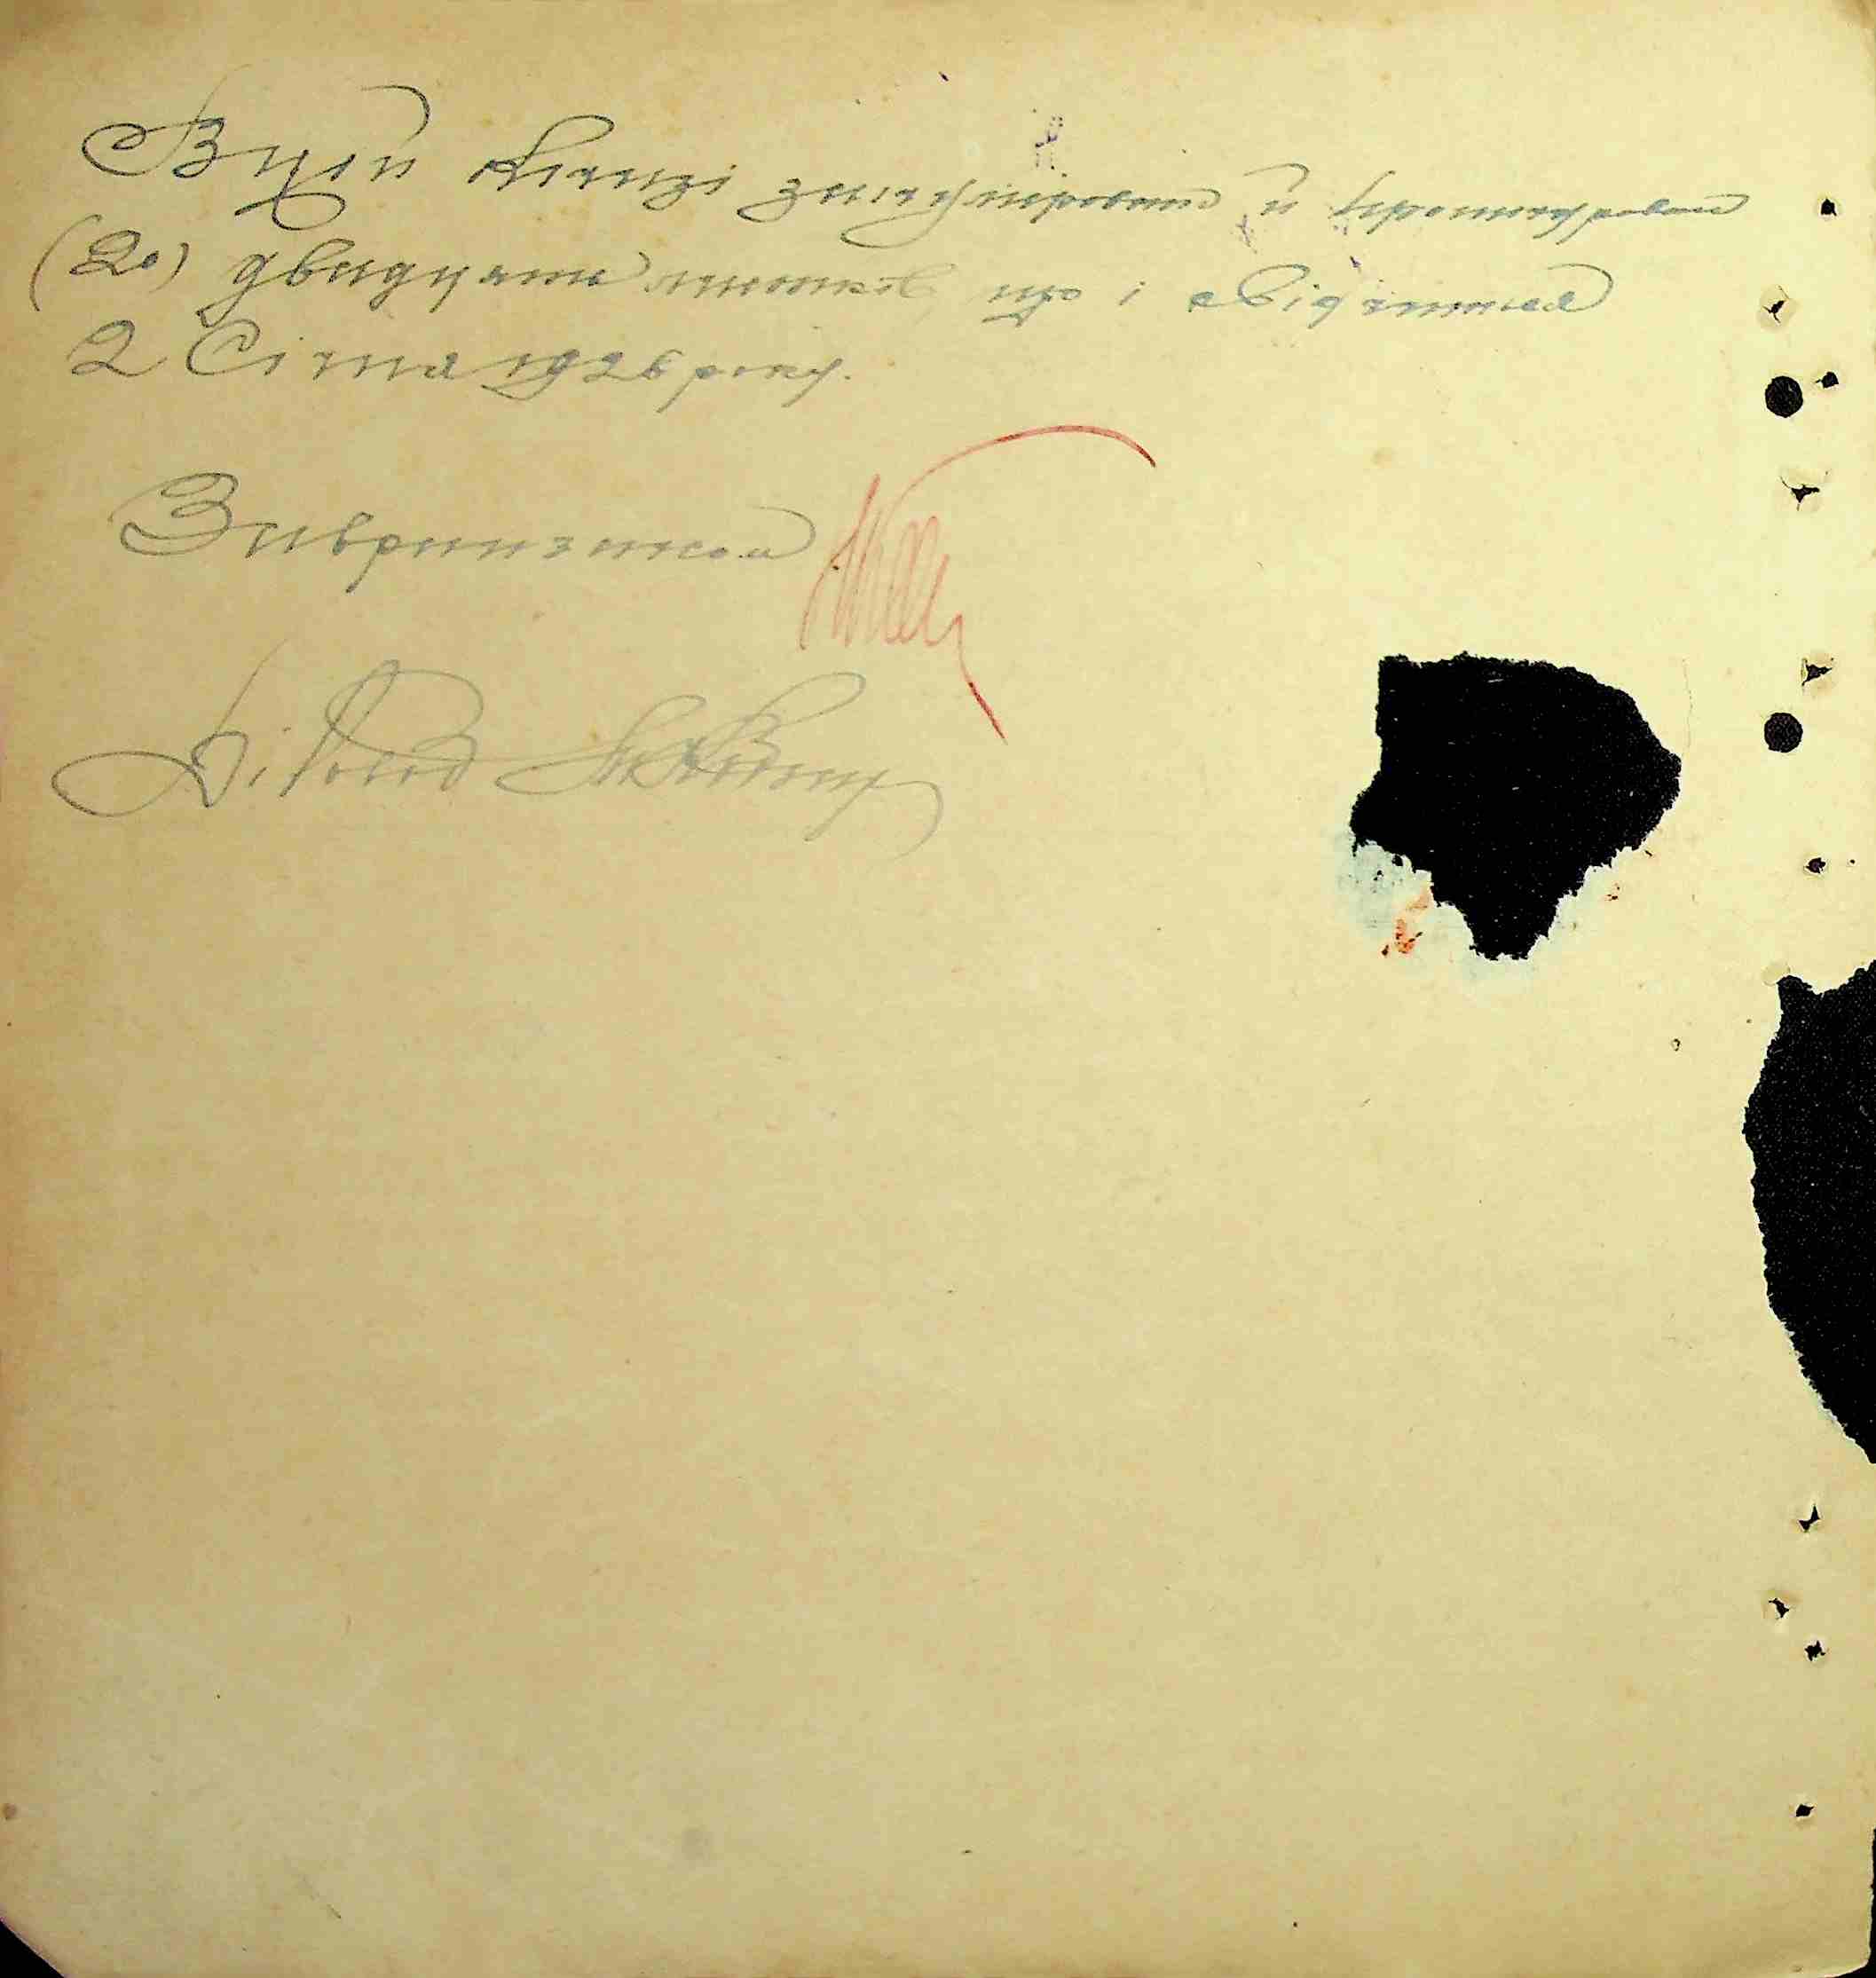 В цій книзі занумеровано й прошнуровано
(20) двадцять листків що і свідчится
2 Січня 1926 року.
Діловод